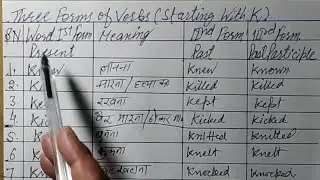 Three Forms of Verbs (Starting With K)
SN Word Ist Form Meaning IInd Form IIIrd Form
Present Past Past Participle
1. Know जानना Knew Known
2. मारना / हत्या कर Killed Killed
3. रखना Kept Kept
4. पैर मारना / ठोकर Kicked Kicked
5 Knitted Knitted
6 Knelt Knelt
7 Knocked Knocked